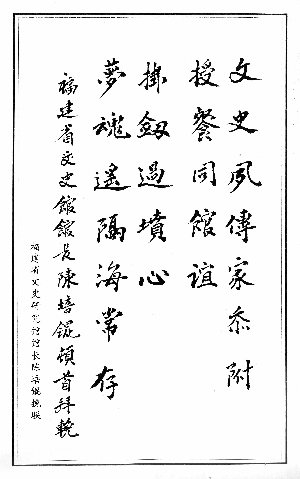 文史夙傳家忝附
授餐同館誼
掛劔過墳心
夢魂遙隔海常存
福建省文史館館長陳培錕頓首拜輓
福建省文史研究館館長陳培錕挽聯